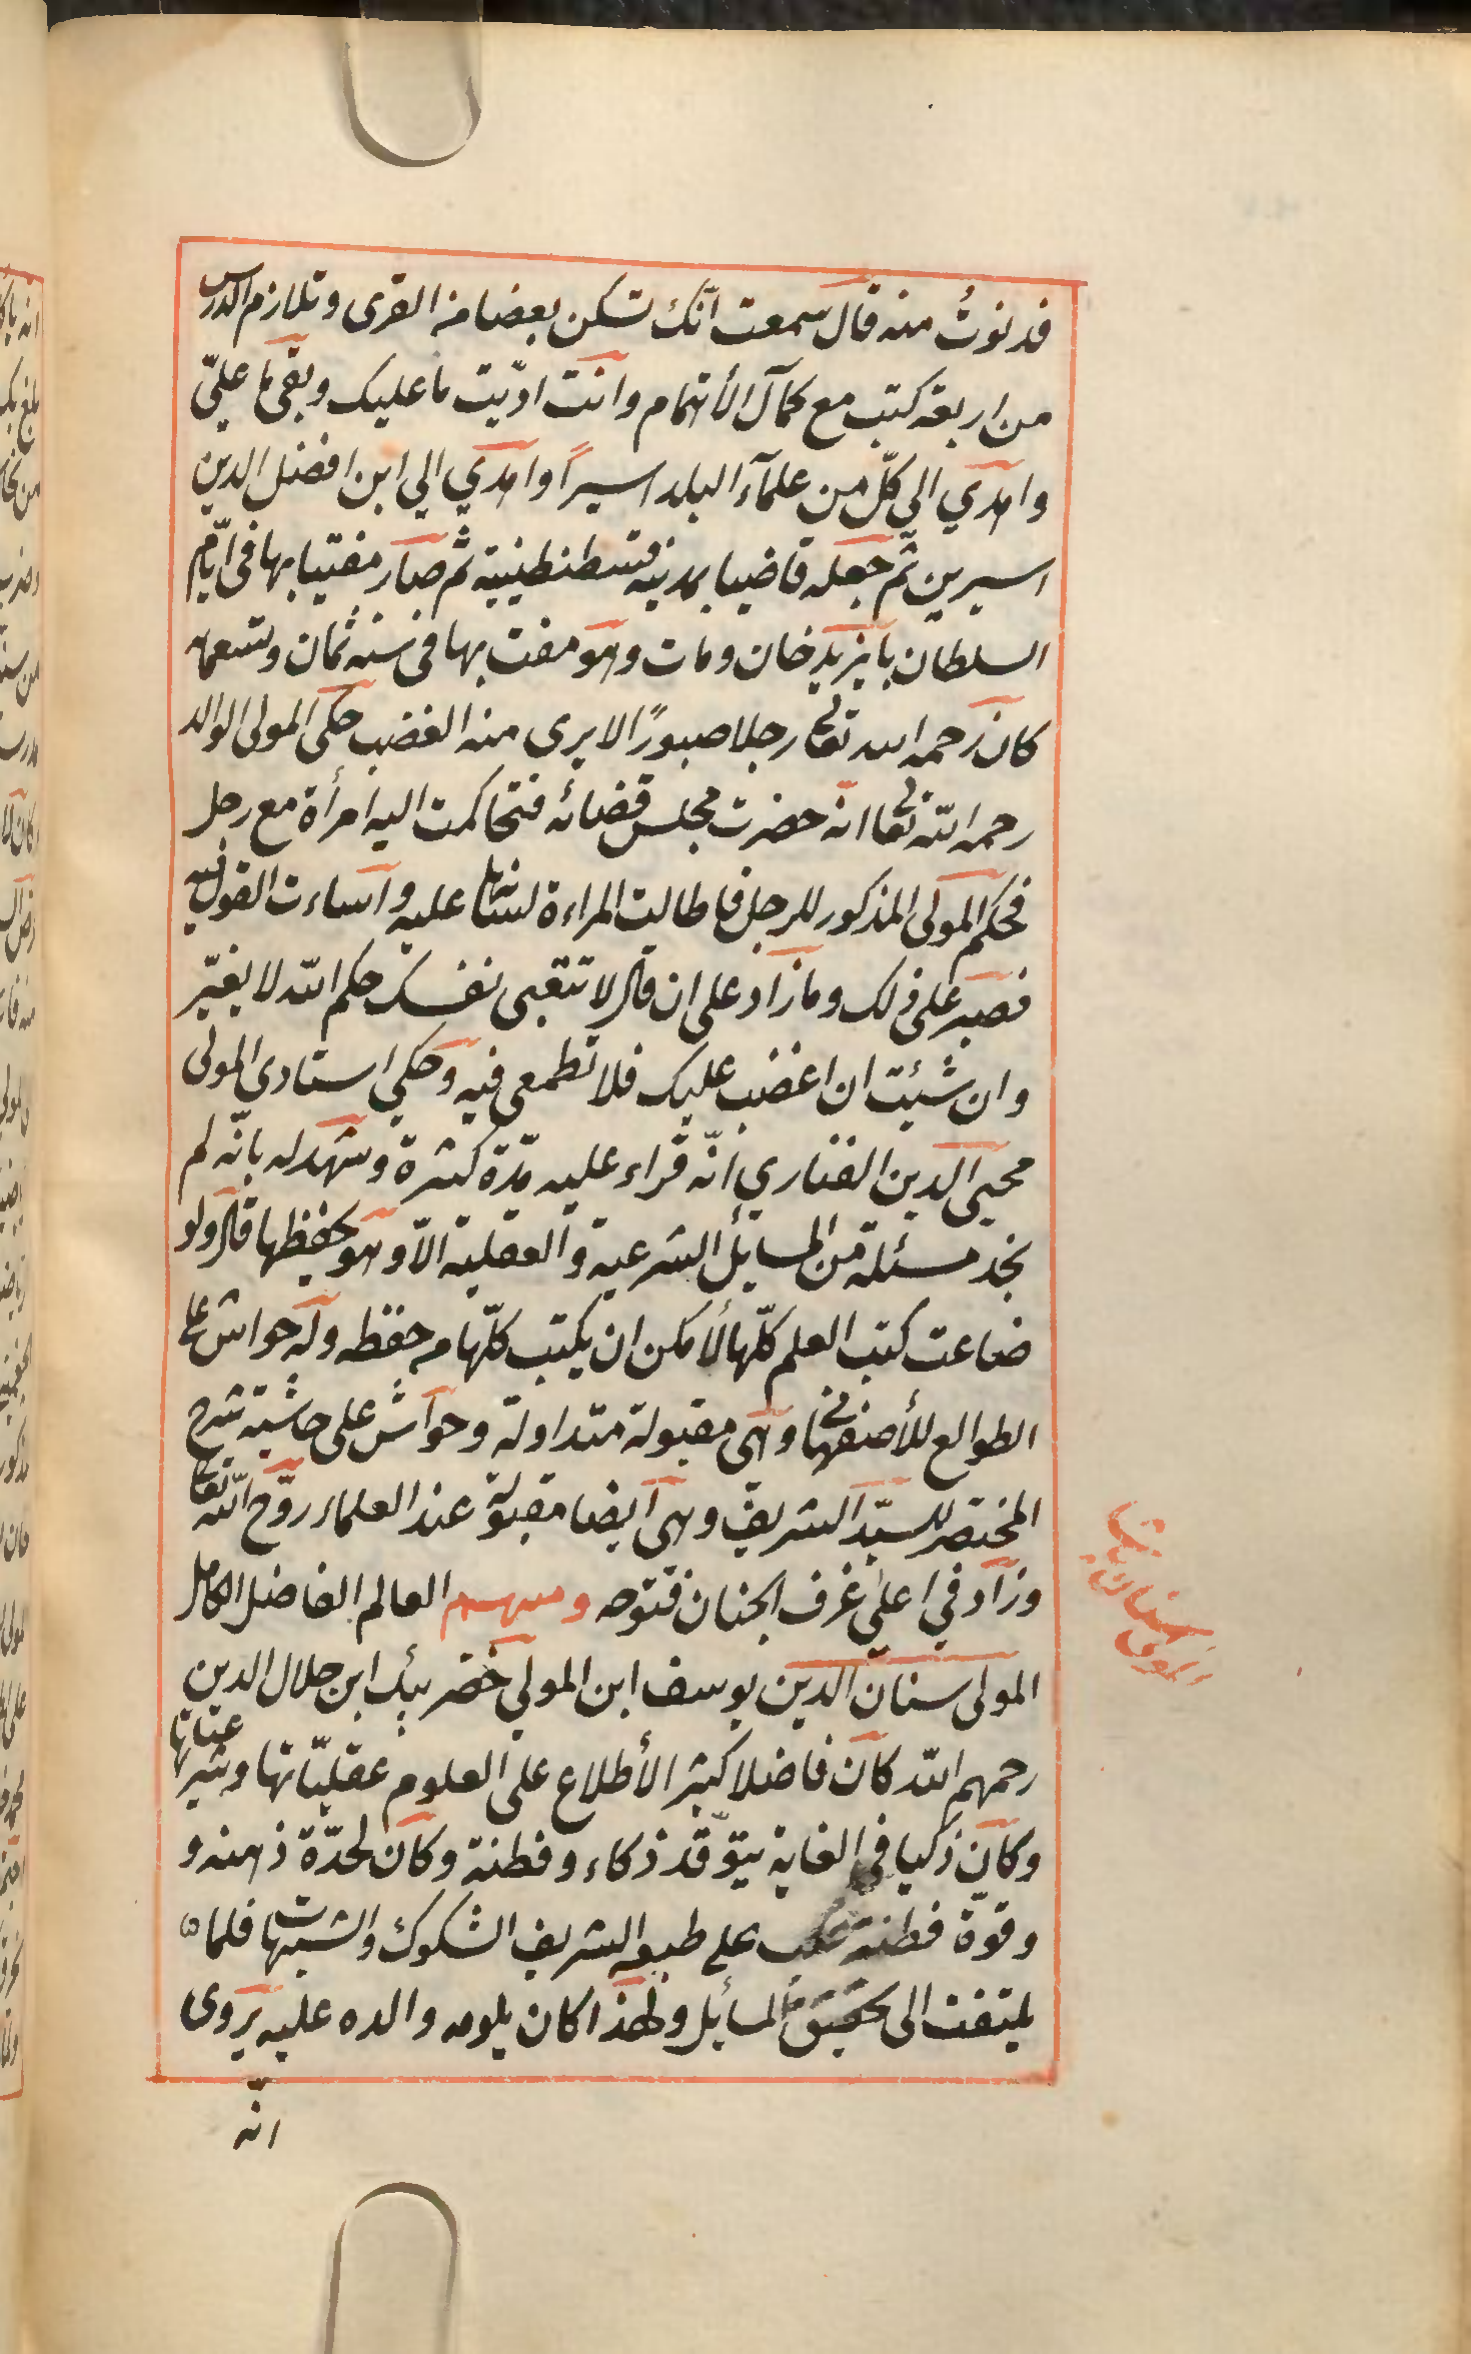 فدنوتُ منه قال سمعت انّك تسكن بعضا من القرى وتلازم الدرس
من اربعة كتب مع كمال الأهتمام وانت ادّيت ما عليك وبقى ما علىّ
واهدي الي كلّ من علمآء البلد اسيراً واهدي الي ابن افضل الدين
اسيرين ثم جعله قاضيا بمدينة قسطنطينية ثم صار مفتيا بها فى ايّام
السلطان بايزيد خان ومات وهو مفت بها فى سنة ثمان وتسعمائه
كان رحمه الله تعالى رجلا صبورًا لا يرى منه الغضب حكى المولى الوالد
رحمه الله تعالى انه حضرت مجلس قضائه فتحاكمت اليه امرأة مع رجل
فحكم المولى المذكور للرجل فاطالت المراءة لسانها عليه واساءت القول فيه
فصبر على ذلك وما زاد على ان قال لا تتعبى نفسك حكم الله لا يغيّر
وان شئت ان اغضب عليك فلا تطمعى فيه وحكي استادي المولى
محيى الدين الفناري انّه قراء عليه مدّة كثيرة وشهد له بانّه لم
نجد مسئلة من المسايل الشرعية والعقلية الاّ وهو يحفظها قال ولو
ضاعت كتب العلم كلّها لأمكن ان يكتب كلّها من حفظه وله حواش على
الطوالع للأصفهانى وهى مقبولة متداولة وحواش على حاشية شرح
المختصر للسيّد الشريف وهى ايضا مقبولة عند العلماء روّح الله تعالى
وزاد في اعلى غرف الجنان فتوحه ومنهم العالم الفاضل الكامل
المولى سنان الدين يوسف ابن المولي خضر بيك ابن جلال الدين
رحمهم الله كان فاضلا كثير الأطلاع على العلوم عقليّاتها وشرعيّاتها
وكان ذكيا في الغاية يتوقّد ذكاء وفطنة وكان لحدّة ذهنه و
وقوة فطنته على طبعه الشريف الشكوك والشبهات فلما
يلتفت الى تحقيق المسائل ولهذا كان يلومه والده عليه يروى
انّه
المولى سنان